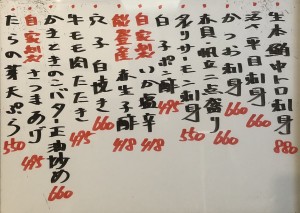 生本鮪中トロ刺身 880
活〆平目刺身 660
かつお刺身 660
赤貝帆立二点盛り 660
炙りサーモン刺身 550
白子ポン酢 495
自家製いか塩辛 418
能登産赤生子酢 418
穴子白焼き 660
牛モモ肉たたき 495
かきときのこバター正油炒め 660
自家製さつまあげ 495
たらの芽天ぷら 550